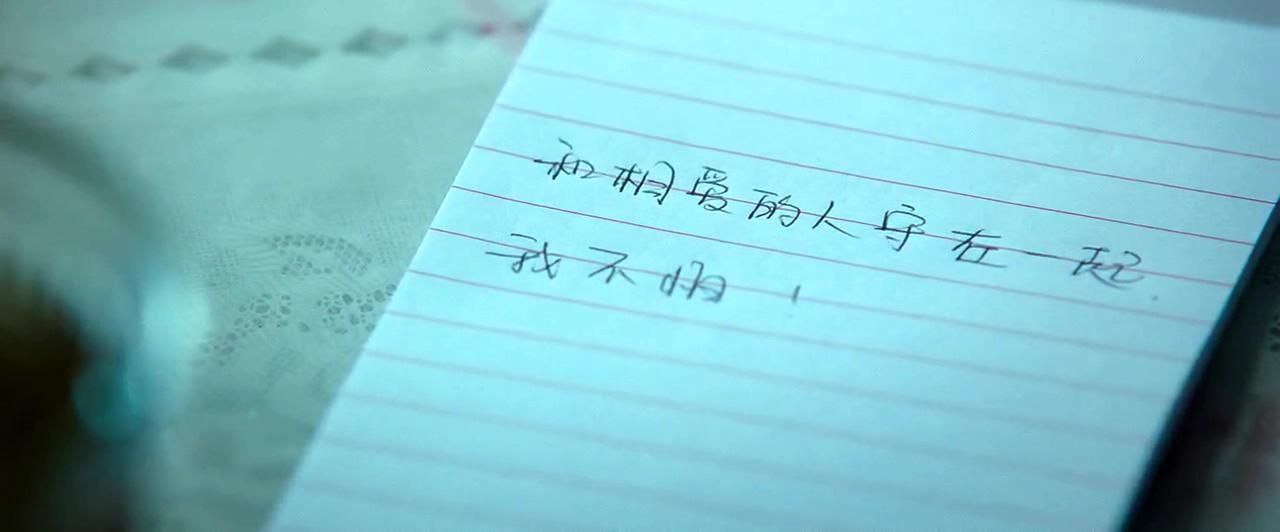 和相爱的人守在一起.
我不怕！